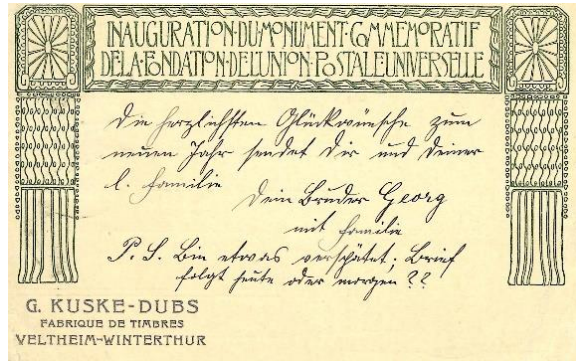 INAUGURATION·DU·MONUMENT·COMMEMORATIF
DE·LA·FONDATION·DE·L'UNION·POSTALE·UNIVERSELLE
Die herzlichsten Glückwünsche zum
neuen Jahr sendet Dir und Deiner
l. Familie
Dein Bruder Georg
mit Familie
P. S. Bin etwas verspätet; Brief
folgt heute oder morgen ??
G. KUSKE-DUBS
FABRIQUE DE TIMBRES
VELTHEIM-WINTERTHUR